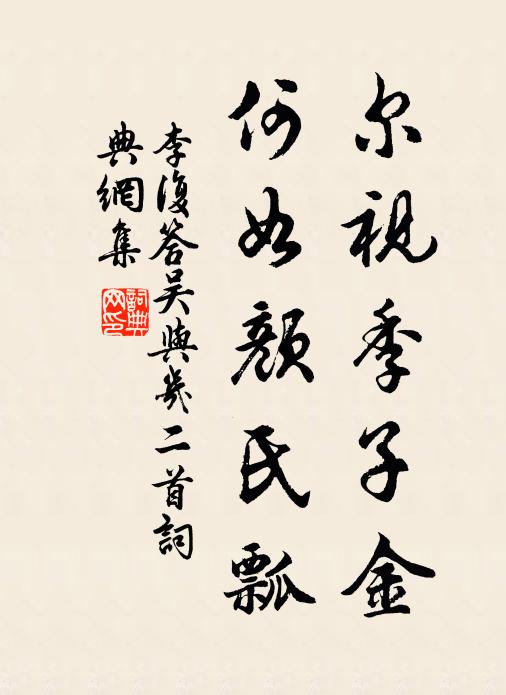 尔视季子金
何如颜氏瓢
李復答吴與幾二首詞
典網集
詞典
网印